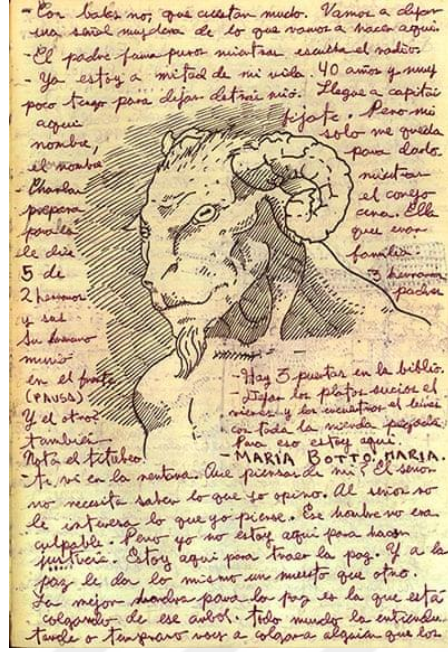 - Con balas no, que cuestan mucho. Vamos a dejar
una señal muy clara de lo que vamos a hacer aquí.
- El padre fuma puros mientras escucha el radio.
- Ya estoy a mitad de mi vida. 40 años y muy
poco tengo para dejar detrás mío. Llegué a capitán
aquí fijate. Pero mi
nombre, solo me queda
el nombre para darlo.
- Charlan mientras
prepara el conejo
para la cena. Ella
le dice que eran
5 de familia.
2 hermanos 3 hermanas
y sus padres
Su hermano
murió
en el frente
(PAUSA)
Y el otro?
también.
Nota el titubeo
- Hay 3 puertas en la biblio.
- Dejar los platos sucios el
viernes y los encuentras el lunes
con toda la mierda pegada.
Para eso estoy aquí.
- MARIA BOTTO: MARIA.
- te vi en la ventana. Que piensas de mi? El señor
no necesita saber lo que yo opino. Al señor no
le interesa lo que yo piense. Ese hombre no era
culpable. Pero yo no estoy aquí para hacer
justicia. Estoy aquí para traer la paz. Y a la
paz le da lo mismo un muerto que otro.
La mejor para la paz es la que está
colgando de ese arbol. todo mundo la entiende
tarde o temprano vas a colgar a alguien que los